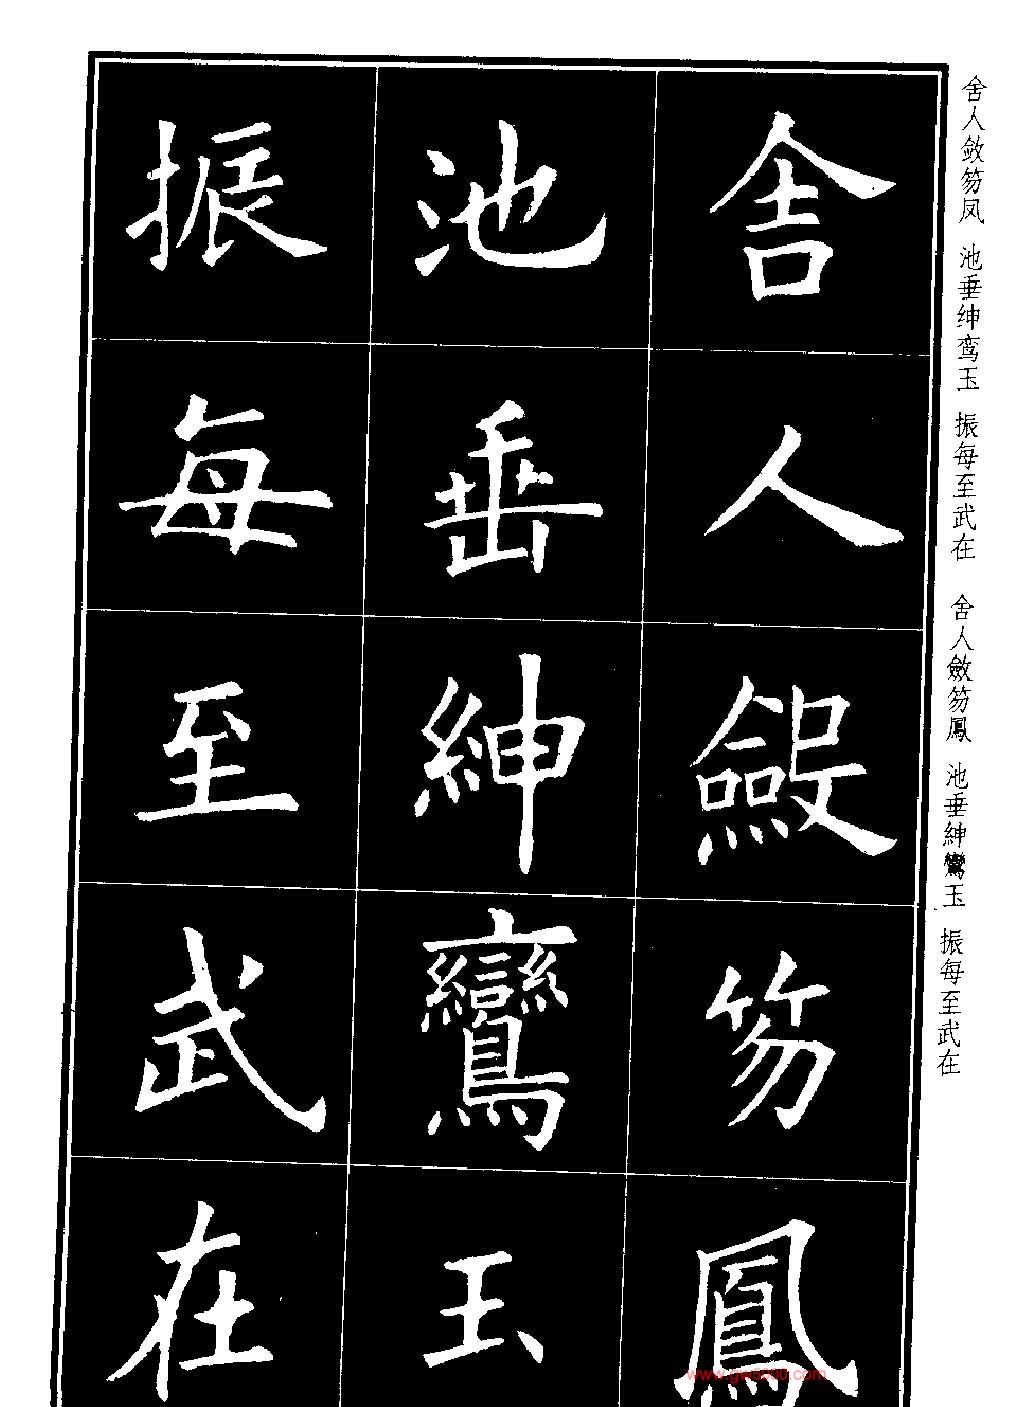 舍人斂笏鳳
池垂紳鸞玉
振每至武在
舍人敛笏凤 池垂绅鸾玉 振每至武在
舍人斂笏鳳 池垂紳鸞玉 振每至武在